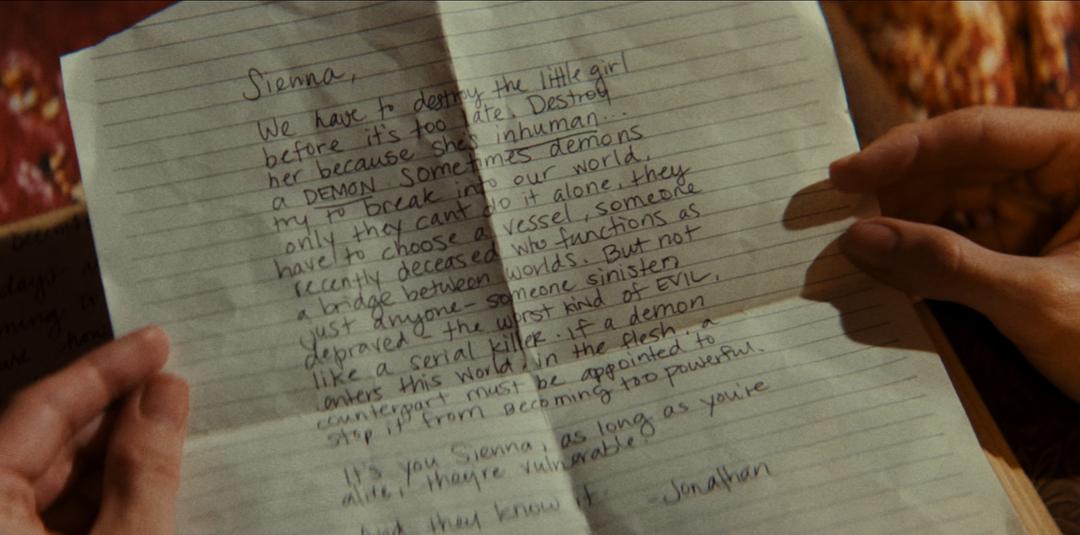 Sienna,
We have to destroy the little girl
before it's too late. Destroy
her because she's inhuman...
a DEMON. Sometimes demons
try to break into our world,
only they cant do it alone, they
have to choose a vessel, someone
recently deceased who functions as
a bridge between worlds. But not
just anyone - someone sinister,
depraved - the worst kind of EVIL,
like a serial killer. If a demon
enters this world, in the flesh, a
counterpart must be appointed to
stop it from becoming too powerful.
It's you Sienna, as long as you're
alive, they're vulnerable.
And they know it -Jonathan
days